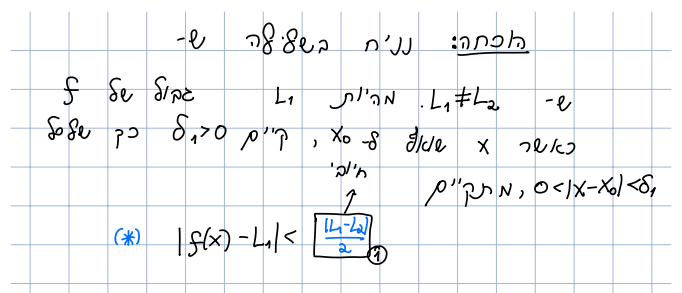 הוכחה: נניח בשלילה ש-
ש- L₁≠L₂. מהיות L₁ גבול של f
כאשר x שואף ל-x₀, קיים δ₁>0 כך שלכל
0<|x-x₀|<δ₁, מתקיים
חיובי
(*) |f(x)-L₁| < |L₁-L₂|/2 ①